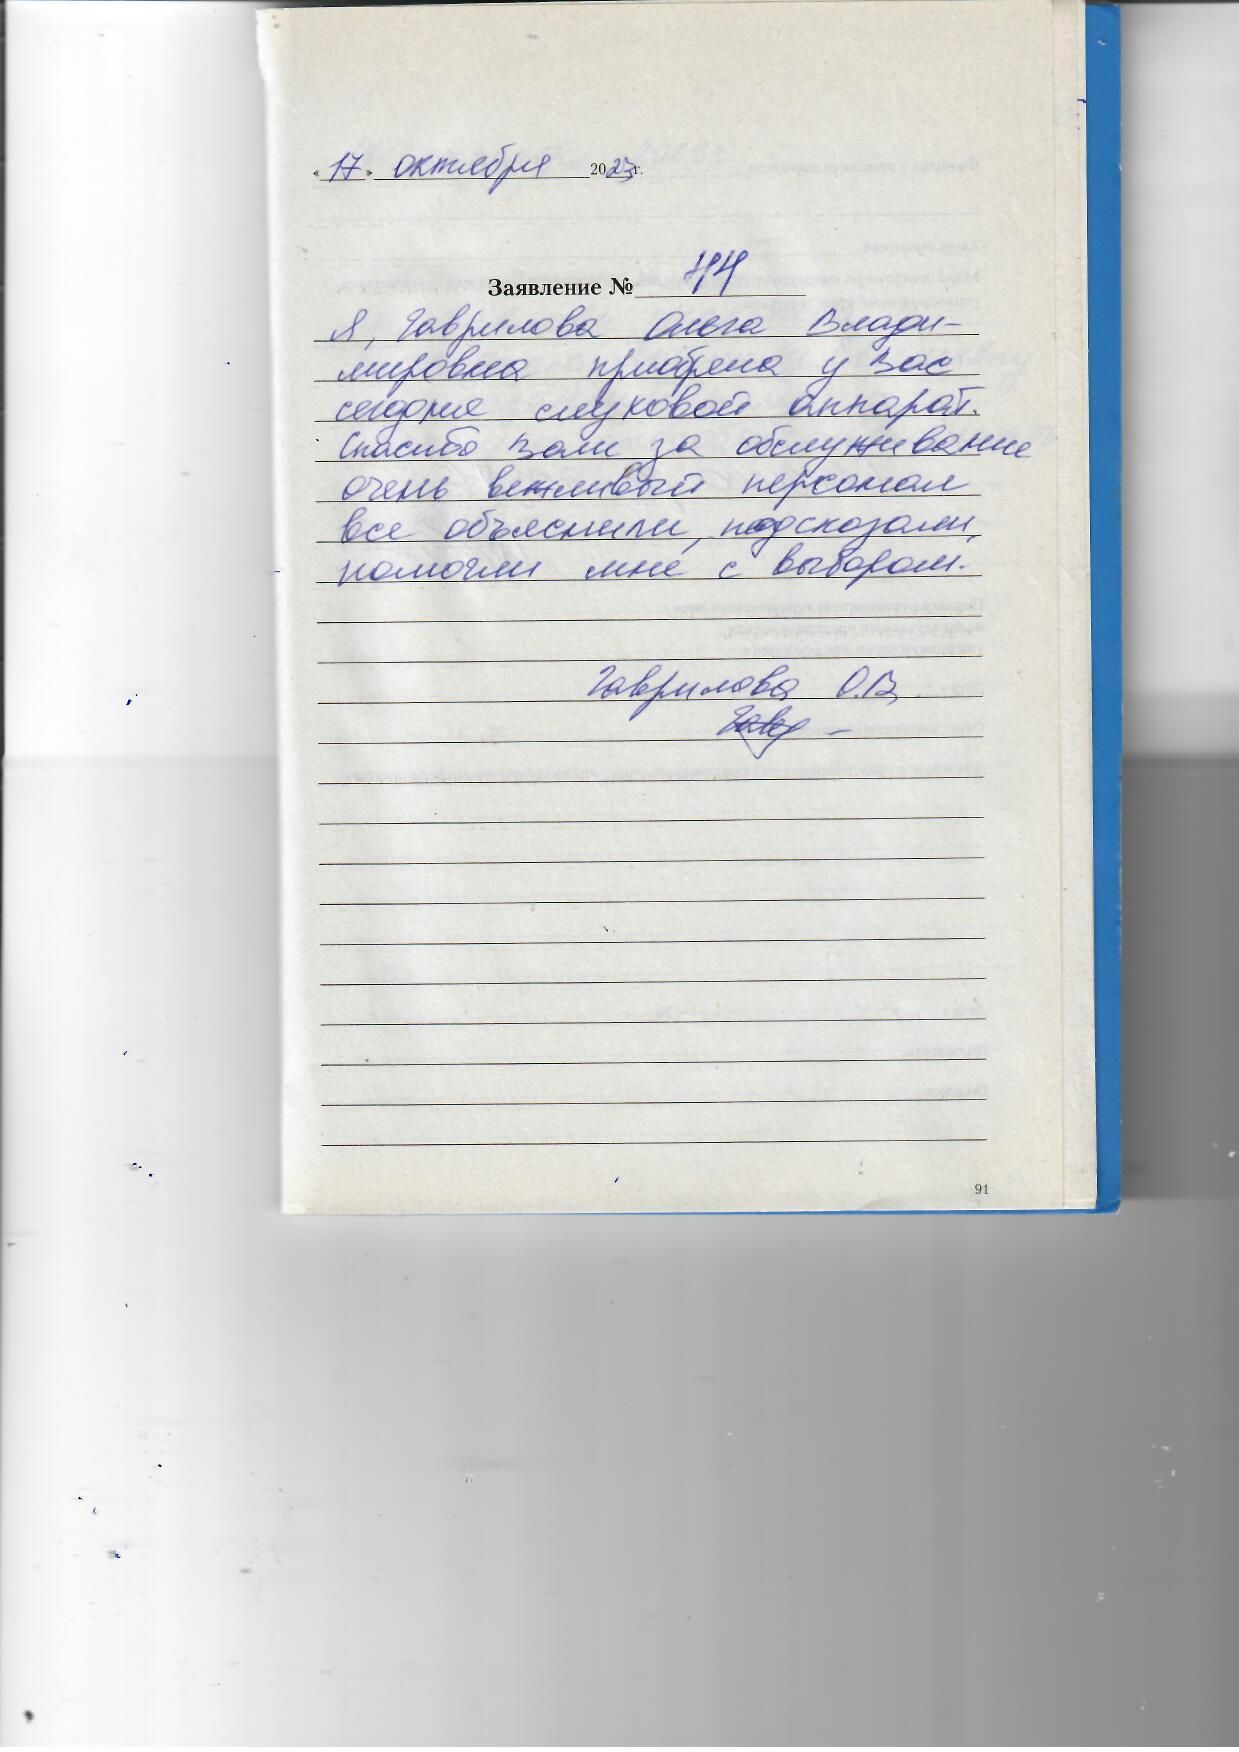 «17» октября 2023г.
Заявление № 44
Я, Гаврилова Ольга Влади-
мировна приобрела у Вас
сегодня слуховой аппарат.
Спасибо Вам за обслуживание
очень вежливый персонал
все объяснили, подсказали,
помогли мне с выбором.
Гаврилова О.В.
91